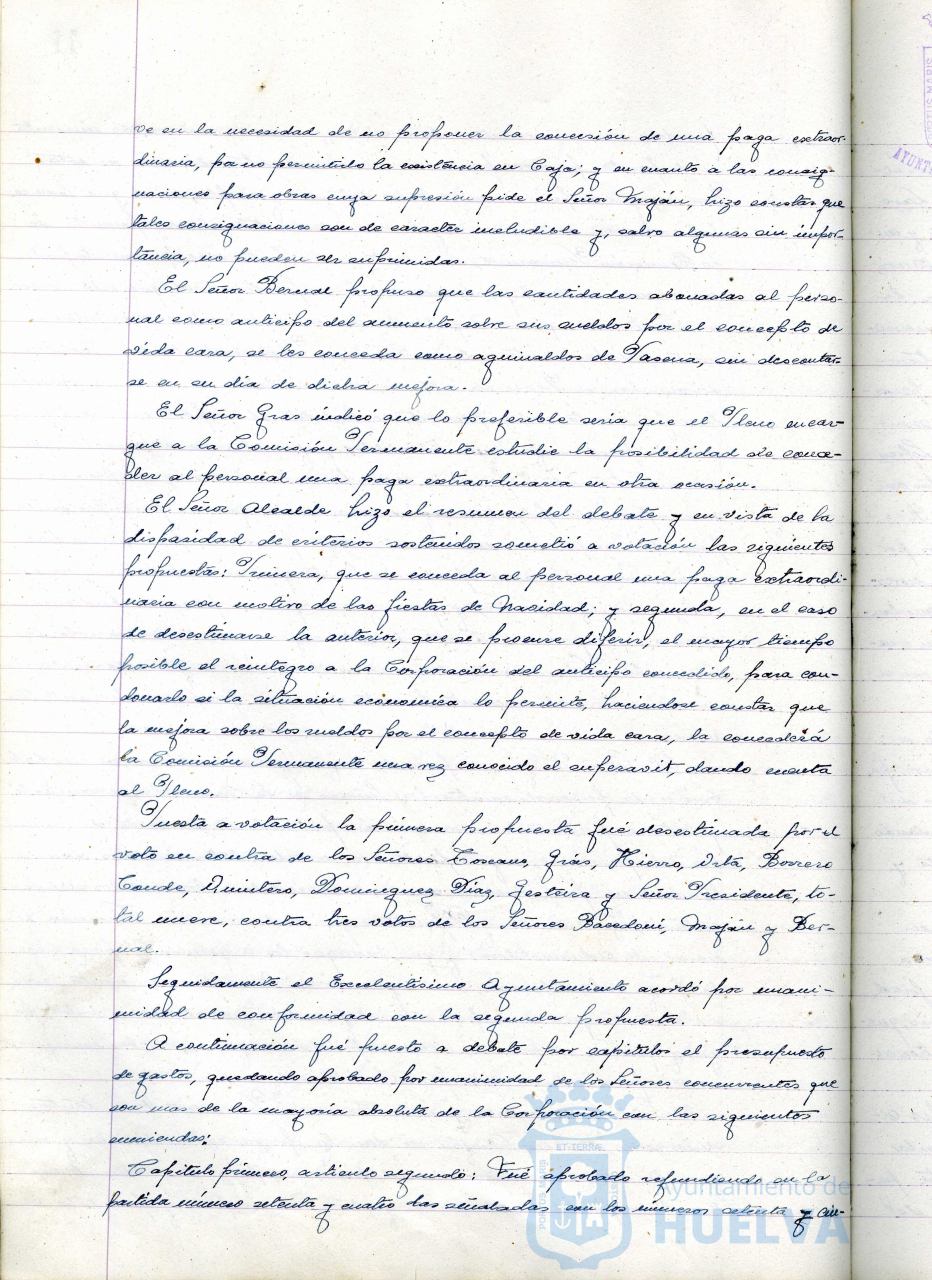 ve en la necesidad de no proponer la concesión de una paga extraor-
dinaria, pa no permitirlo la existencia en Caja; y en cuanto a las consig-
naciones para obras cuya supresión pide el Señor Maján, hizo constar que
tales consignaciones son de caracter ineludible y, salvo algunas sin impor-
tancia, no pueden ser suprimidas.
El Señor Bernal propuso que las cantidades abonadas al perso-
nal como anticipo del aumento sobre sus sueldos por el concepto de
vida cara, se les conceda como aguinaldos de Pascua, sin descontar-
se en su día de dicha mejora.
El Señor Gras indicó que lo preferible sería que el Pleno encar-
gue a la Comisión Permanente estudie la posibilidad de conce-
der al personal una paga extraordinaria en otra ocasión.
El Señor Alcalde hizo el resumen del debate y en vista de la
disparidad de criterios sostenidos sometió a votación las siguientes
propuestas: Primera, que se conceda al personal una paga extraordi-
naria con motivo de las fiestas de Navidad; y segunda, en el caso
de desestimarse la anterior, que se procure diferir, el mayor tiempo
posible el reintegro a la Corporación del anticipo concedido, para con-
donarlo si la situación económica lo permite, haciendose constar que
la mejora sobre los sueldos por el concepto de vida cara, la concederá
la Comisión Permanente una vez conocido el superavit, dando cuenta
al Pleno.
Puesta a votación la primera propuesta fué desestimada por el
voto en contra de los Señores Toscano, Grás, Hierro, Borrero
Conde, Quintero, Dominguez Díaz, Gesteira y Señor Presidente, to-
tal nueve, contra tres votos de los Señores Bacedoni, Maján y Ber-
nal.
Seguidamente el Excelentísimo Ayuntamiento acordó por unani-
midad de conformidad con la segunda propuesta.
A continuación fué puesto a debate por capítulos el presupuesto
de gastos, quedando aprobado por unanimidad de los Señores concurrentes que
son mas de la mayoría absoluta de la Corporación con las siguientes
enmiendas:
Capitulo primero, artículo segundo: Fué aprobado refundiendo en la
partida número setenta y cuatro las señaladas con los numeros setenta y cin-
Ayuntamiento de
HUELVA